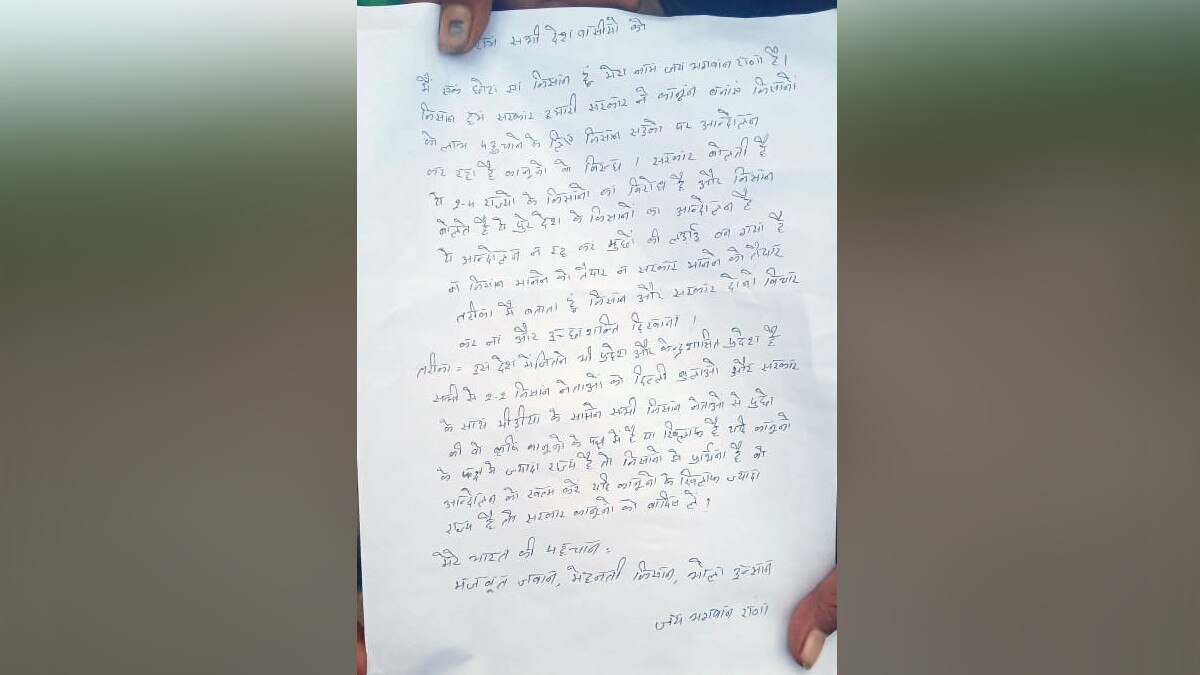 सभी देश वासीयो को
मैं एक छोटा सा किसान हूं मेरा नाम जय भगवान राणा है।
किसान हम सरकार हमारी सरकार ने कानून बनाऐ किसानो
के लाभ पहुचाने के लिए किसान सड़को पर आन्दोलन
कर रहा है कानूनो के विरूध। सरकार बोलती है
ये 2-4 राज्यो के किसानो का विरोध है और किसान
बोलते है ये पुरे देश के किसानों का आन्दोलन है
ये आन्दोलन न रह कर मुद्दों की लड़ाई बन गया है
न किसान मानने को तैयार न सरकार मानने को तैयार
तरीका मैं बताता हूं किसान और सरकार दोनो विचार
कर ना और इच्छाशक्ति दिखाना।
तरीका = इस देश में जितने भी प्रदेश और केन्द्रशासित प्रदेश है
सभी से 2-2 किसान नेताओं को दिल्ली बुलाओ और सरकार
के साथ मीडीया के सामने सभी किसान नेताओ से पुछे
की वो कृषि कानूनो के पक्ष में है या खिलाफ है यदि कानूनो
के पक्ष मे ज्यादा राज्य है तो किसानो से प्रार्थना है की
आन्दोलन को खत्म करे यदि कानूनो के खिलाफ ज्यादा
राज्य है तो सरकार कानूनो को वापिस ले?
मेरे भारत की पहचान =
मजबूत जवान, मेहनती किसान, भोला इन्सान
जय भगवान राणा